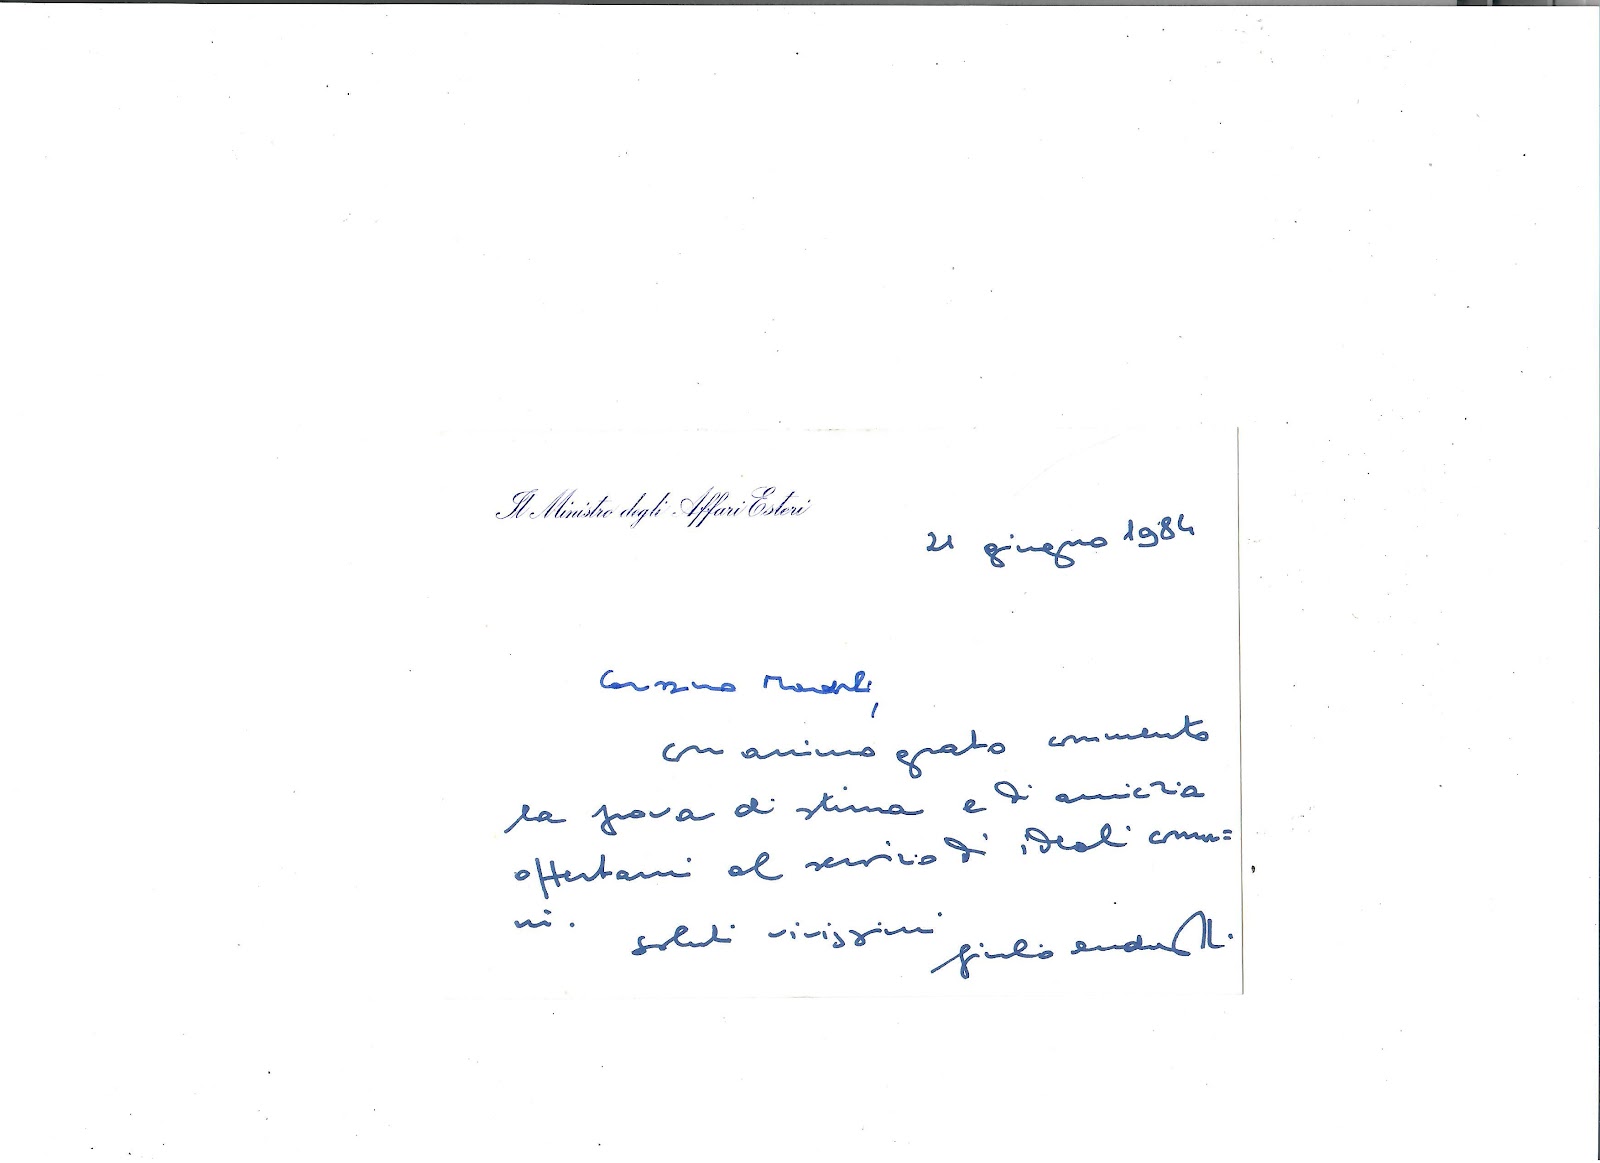 Il Ministro degli Affari Esteri
21 giugno 1984
Carissimo
con animo grato commento
la prova di stima e di amicizia
offertami al servizio di ideali comu=
ni.
Saluti vivissimi
Giulio Andreotti